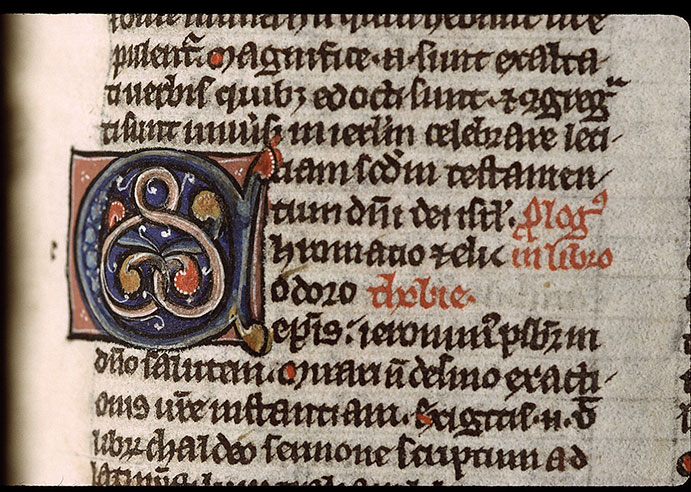 pulent. Magnifice .n. sunt exalta-
ti verbis quibz edocti sunt. ⁊ ꝯgreg
ti sunt in ierlm celebrare leti-
tiam scdm testamen-
tum dni dei isrl. Plog9
hromatio ⁊ elic in libro
odoro thobie.
epis: ieronimꝰ psbr in
dno salutem. Mirari n desino exacti-
onis vre instantiam. Exigitis .n. ut
libru chaldeo sermone scriptum ad